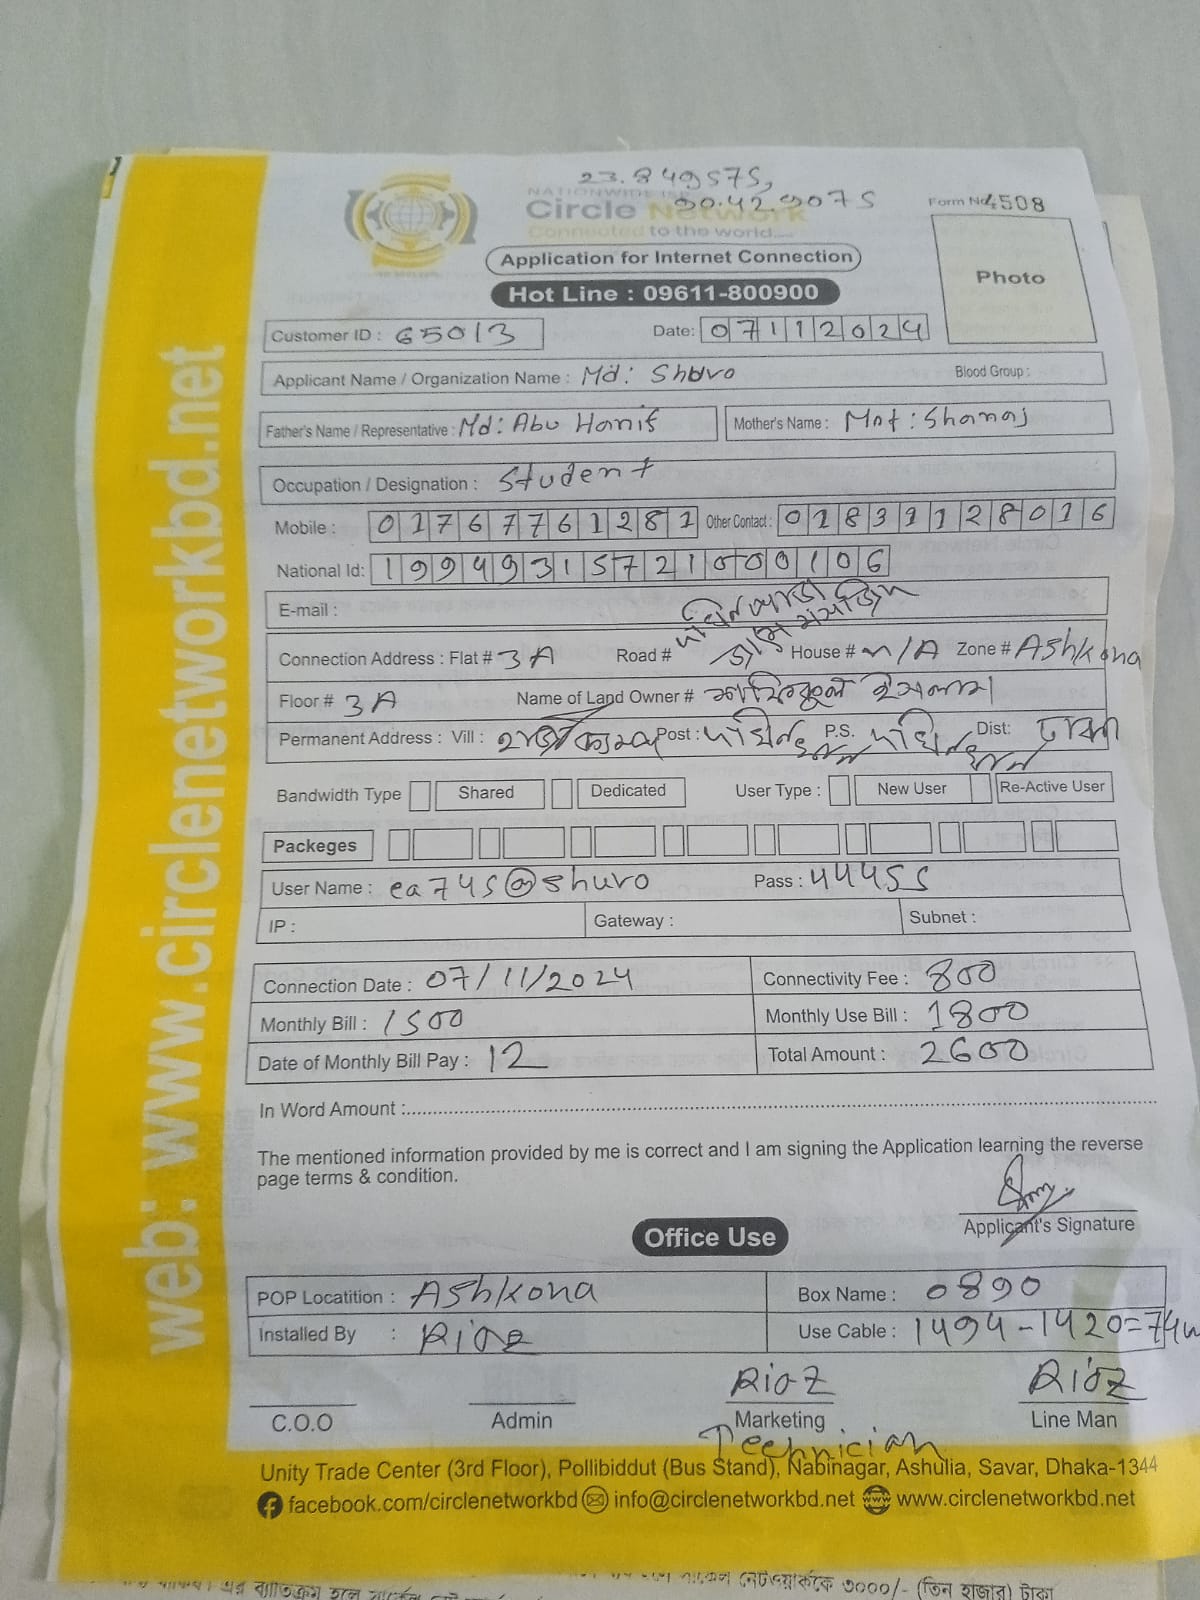 23.849575,
90.429075
NATIONWIDE ISP
Circle Network
Connected to the world....
Form No. 4508
Application for Internet Connection
Photo
Hot Line : 09611-800900
Customer ID : 65013 Date: 07112024
Applicant Name / Organization Name : Md: Shuvo Blood Group :
Father's Name / Representative : Md: Abu Hanif Mother's Name : Mst: Shanaj
Occupation / Designation : Student
Mobile : 01767761281 Other Contact : 01831128016
National Id: 19949315721000106
E-mail :
জামে মসজিদ
Connection Address : Flat # 3A Road # House # n/A Zone # Ashkona
Floor # 3A Name of Land Owner # ইসলাম
Permanent Address : Vill : Post : P.S. Dist: ঢাকা
Bandwidth Type Shared Dedicated User Type : New User Re-Active User
Packeges
User Name : ea745@shuvo Pass : 44455
IP : Gateway : Subnet :
Connection Date : 07/11/2024 Connectivity Fee : 800
Monthly Bill : 1500 Monthly Use Bill : 1800
Date of Monthly Bill Pay : 12 Total Amount : 2600
In Word Amount :
The mentioned information provided by me is correct and I am signing the Application learning the reverse
page terms & condition.
Applicant's Signature
Office Use
POP Locatition : Ashkona Box Name : 0890
Installed By : Riaz Use Cable : 1494-1420=74m
Riaz Riaz
C.O.O Admin Marketing Line Man
Technician
Unity Trade Center (3rd Floor), Pollibiddut (Bus Stand), Nabinagar, Ashulia, Savar, Dhaka-1344
facebook.com/circlenetworkbd info@circlenetworkbd.net www.circlenetworkbd.net
web: www.circlenetworkbd.net
এর ব্যতিক্রম হলে সার্কেল নেটওয়ার্ককে ৩০০০/- (তিন হাজার) টাকা